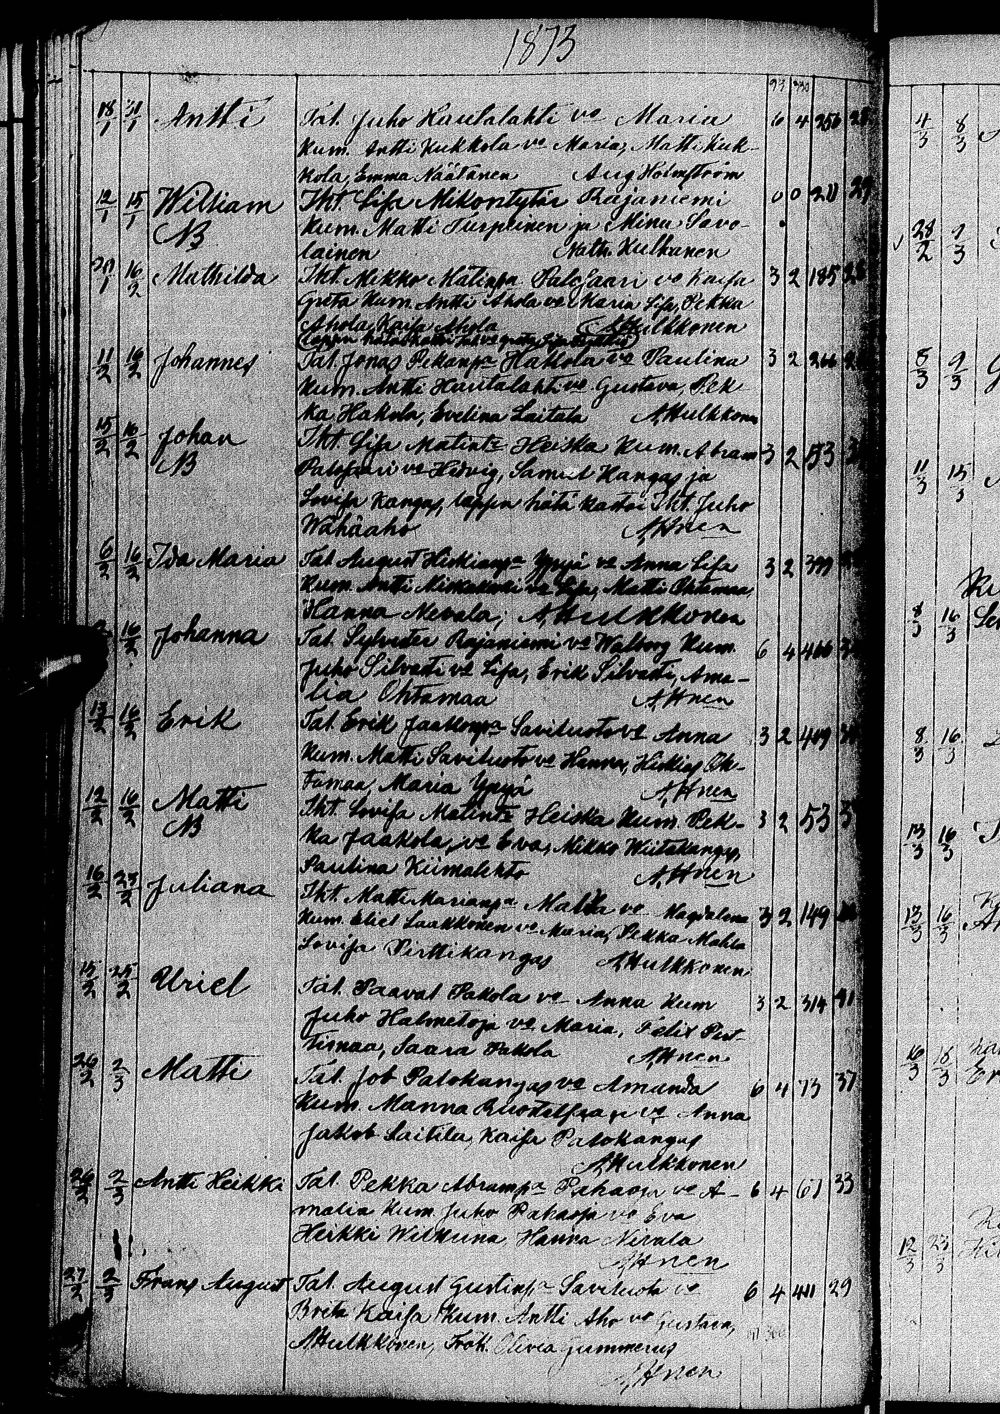 1873
18/1 31/1 Antti Tal. Juho Hautalahti vo Maria 6 4 256
Kum. Antti Kukkola vo Maria, Matti Kuk-
kola, Emma Näätänen Aug Holmström
12/1 15/1 William Tht. Lisa Mikontytär Rajaniemi 0 0 211 29
NB Kum. Matti Turpeinen ja Minu Savo-
lainen Natth. Hulkanen
16/2 Mathilda Tht. Mikko Matinpa Palosaari vo Kaisa 3 2 185
Greta Kum. Antti Ahola vo Karin Lisa, Pekka
Ahola, Kaisa Ahola AHulkkonen
11/2 16/2 Johannes Tal. Jonas Pekanpa Hakola vo Paulina 3 2 266
Kum. Antti Hautalahti vo Gustava, Pek
ka Hakola, Evelina Laitala AHulkkonen
15/2 16/2 Johan Tht. Lisa Matinte Heiska Kum. Abram 3 2 53
NB Palosaari vo Hedvig, Samuel Kangas ja
Lovisa Kangas, lapsen hätä kastoi Tht. Juho
Wähäaho AHnen
6/2 16/2 Ida Maria Tal August Hiskianpa Ypyä vo Anna Lisa 3 2 399
Kum. Antti vo Lisa, Matti Ohtamaa,
Hanna Nevala, AHulkkonen
16/2 Johanna Tal. Sylvester Rajaniemi vo Walborg Kum. 6 4 466
Juho Silvasti vo Lisa, Erik Silvasti, Ama-
lia Ohtamaa AHnen
13/2 16/2 Erik Tal. Erik Jaakonpa Savituoto vo Anna 3 2 409
Kum. Matti Savituoto vo Hanna, Hiskias Oh-
tamaa, Maria Ypyä AHnen
12/2 16/2 Matti Tht. Lovisa Matinte Heiska Kum. Pek- 3 2 53
NB ka Jaakola, vo Eva, Mikko Wiitakangas,
Paulina Kiimalehto AHnen
16/2 23/2 Juliana Tht. Matti Marianpa Mahla vo Magdalena 3 2 149
Kum. Eliel Laakkonen vo Maria, Pekka Mahla
Lovisa Perttikangas AHulkkonen
15/2 25/2 Uriel Tal. Paavat Pakola vo Anna Kum 3 2 314 41
Juho Halmetoja vo Maria, Felix Pert-
timaa, Saara Pakola AHnen
26/2 2/3 Matti Tal. Job Patokangas vo Amanda 6 4 73 37
Kum. Manna vo Anna
Jakob Laitila, Kaisa Patokangas
AHulkkonen
26/2 2/3 Antti Heikki Tal. Pekka Abrampa Pahaoja vo A- 6 4 61 33
malia Kum. Juho Pahaoja vo Eva
Heikki Wilkuna, Hanna Nivala
AHnen
27/2 2/3 Frans August Tal. August Gustinpa Savituoto vo 6 4 411 29
Brita Kaisa Kum. Antti Aho vo Gustava,
AHulkkonen, Frök. Olivia Gummerus
AHnen
4/3 8/3
28/2 9/3
5/3 9/3
11/3 15/3
8/3 16/3
8/3 16/3
13/3 16/3
13/3 16/3
16/3 18/3
12/3 23/3